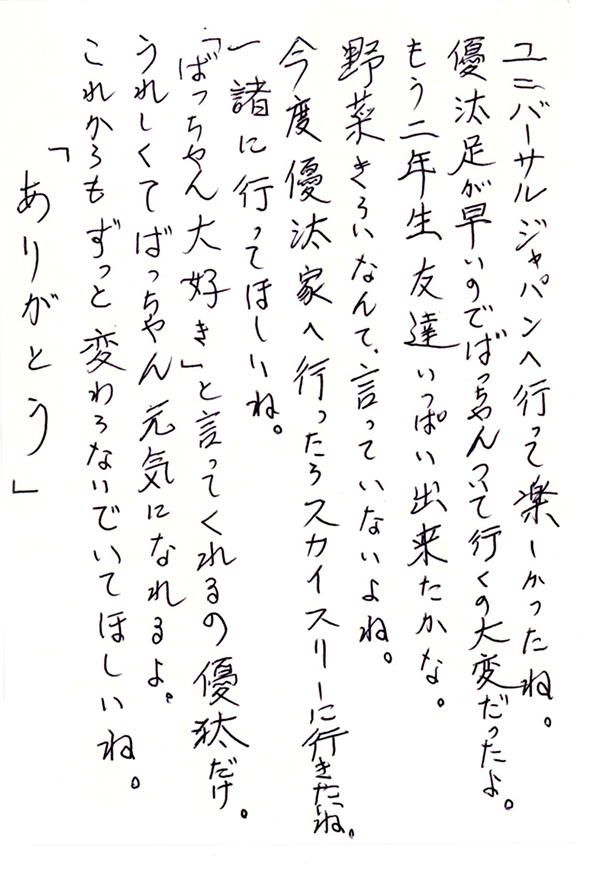 ユニバーサルジャパンへ行って楽しかったね。
優汰足が早いのでばっちゃんついて行くの大変だったよ。
もう二年生友達いっぱい出来たかな。
野菜きらいなんて、言っていないよね。
今度優汰家へ行ったらスカイスリーに行きたいね。
一諸に行ってほしいね。
「ばっちゃん大好き」と言ってくれるの優汰だけ。
うれしくてばっちゃん元気になれるよ。
これからもずっと変わらないでいてほしいね。
「ありがとう」